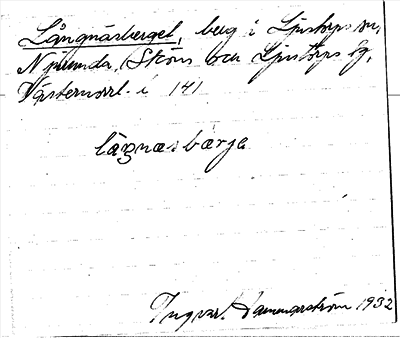 Långnäsberget, berg i Ljustorps sn,
Njurunda, Sköns och Ljustorps tg,
Västernorrl. l. 141
lågnæsbærja
Ingvar Hammarström 1932